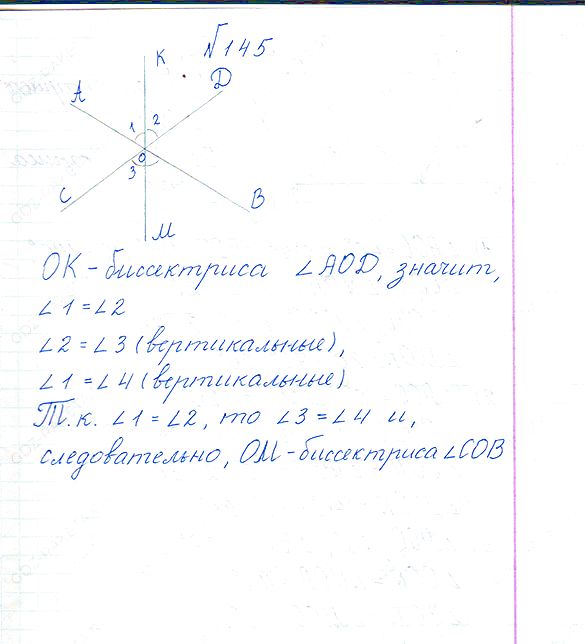 N 145
K
D
A
1 2
O
3
C
B
M
OK - биссектриса ∠AOD, значит,
∠1 = ∠2
∠2 = ∠3 (вертикальные),
∠1 = ∠4 (вертикальные)
Т.к. ∠1 = ∠2, то ∠3 = ∠4 и,
следовательно, OM - биссектриса ∠COB